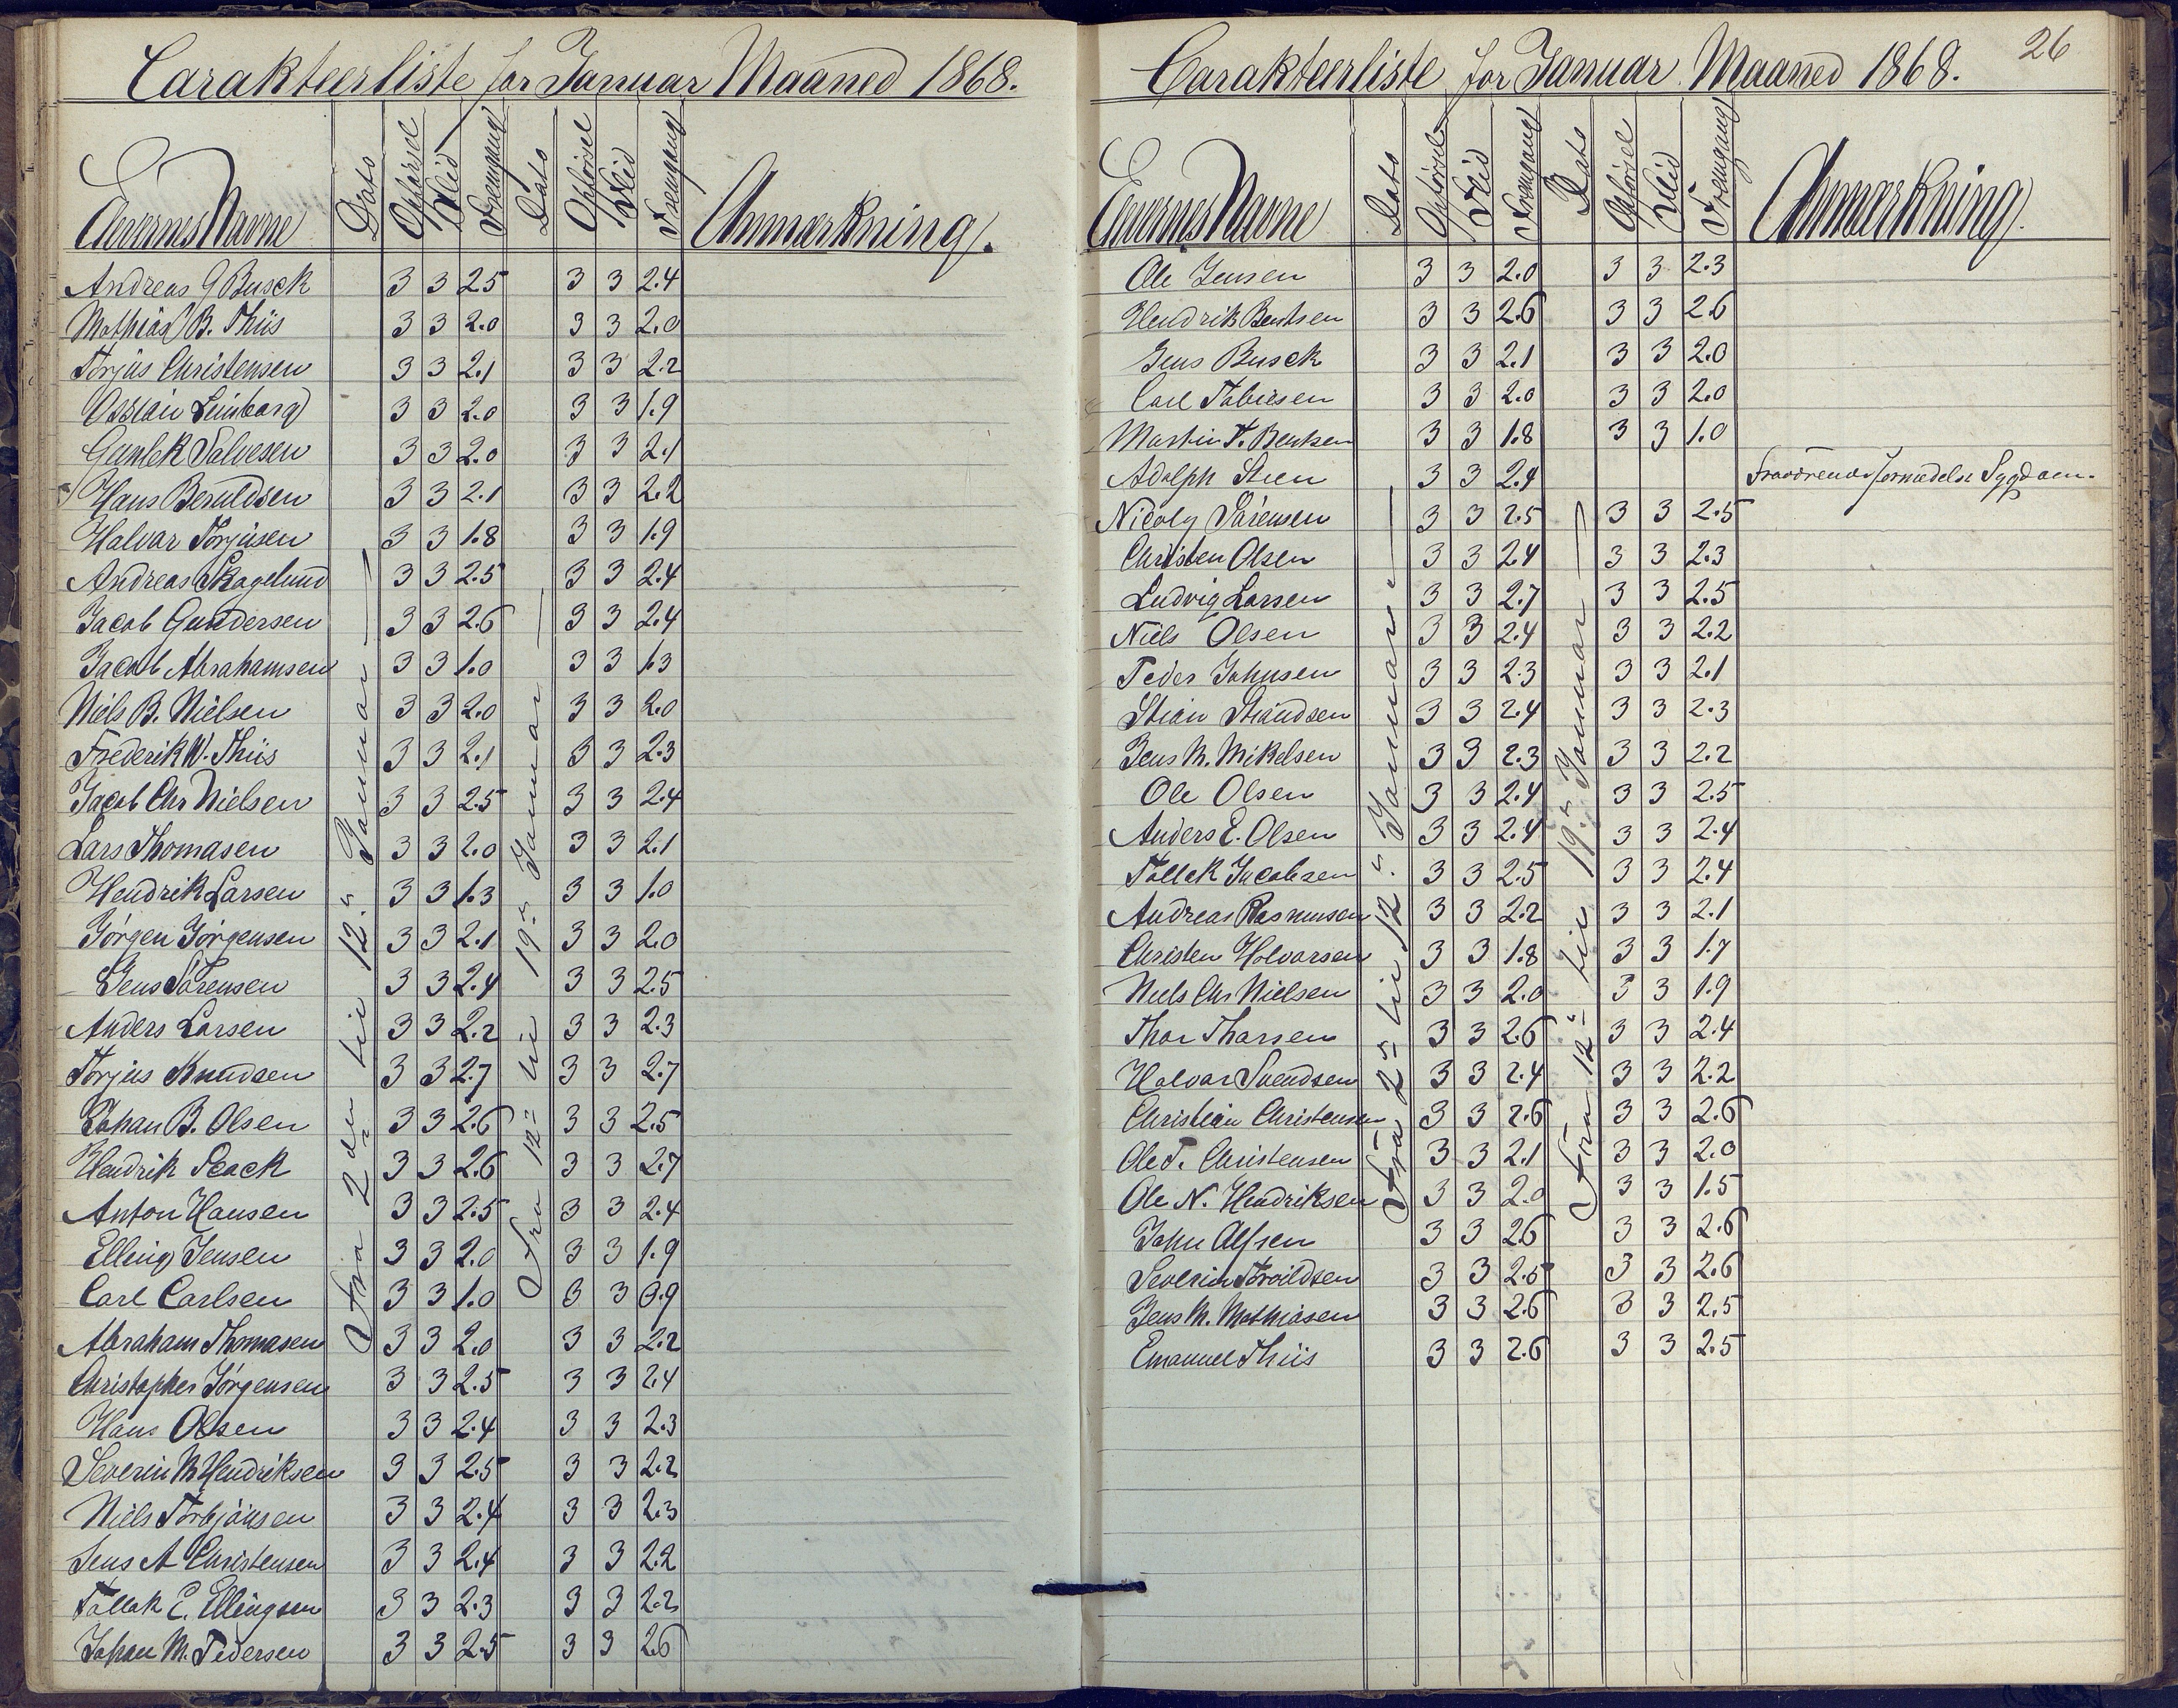 Carakteerliste for Januar Maaned 1868.
Elevernes Navne Dato Opførsel Flid Fremgang Dato Opførsel Flid Fremgang Anmærkning.
Fra 2den til 12te Januar
Fra 12te til 19de Januar
Andreas G Busck 3 3 2.5 3 3 2.4
Mathias B. Thiis 3 3 2.0 3 3 2.0
Torjus Christensen 3 3 2.1 3 3 2.2
Ossian Limborg 3 3 2.0 3 3 1.9
Gunlek Salvesen 3 3 2.0 3 3 2.1
Hans Beruldsen 3 3 2.1 3 3 2.2
Halvar Torjusen 3 3 1.8 3 3 1.9
Andreas Skagelund 3 3 2.5 3 3 2.4
Jacob Gundersen 3 3 2.6 3 3 2.4
Jacob Abrahamsen 3 3 1.0 3 3 1.3
Niels B. Nielsen 3 3 2.0 3 3 2.0
Frederik W. Thiis 3 3 2.1 3 3 2.3
Jacob Chr Nielsen 3 3 2.5 3 3 2.4
Lars Thomasen 3 3 2.0 3 3 2.1
Hendrik Larsen 3 3 1.3 3 3 1.0
Jörgen Jörgensen 3 3 2.1 3 3 2.0
Jens Sörensen 3 3 2.4 3 3 2.5
Anders Larsen 3 3 2.2 3 3 2.3
Torjus Knudsen 3 3 2.7 3 3 2.7
Johan B. Olsen 3 3 2.6 3 3 2.5
Hendrik Stack 3 3 2.6 3 3 2.7
Anton Hansen 3 3 2.5 3 3 2.4
Elling Jensen 3 3 2.0 3 3 1.9
Carl Carlsen 3 3 1.0 3 3 0.9
Abraham Thomasen 3 3 2.0 3 3 2.2
Christopher Jörgensen 3 3 2.5 3 3 2.4
Hans Olsen 3 3 2.4 3 3 2.3
Severin M Hendriksen 3 3 2.5 3 3 2.2
Niels Torbjönsen 3 3 2.4 3 3 2.3
Jens A Christensen 3 3 2.4 3 3 2.2
Tallak E. Ellingsen 3 3 2.3 3 3 2.2
Johan M. Pedersen 3 3 2.5 3 3 2.6
26
Carakteerliste for Januar Maaned 1868.
Elevernes Navne Dato Opførsel Flid Fremgang Dato Opførsel Flid Fremgang Anmærkning.
Fra 2den til 12te Januar
Fra 12te til 19de Januar
Ole Jensen 3 3 2.0 3 3 2.3
Hendrik Bentsen 3 3 2.6 3 3 2.6
Jens Busck 3 3 2.1 3 3 2.0
Carl Tobiesen 3 3 2.0 3 3 2.0
Martin T. Bentsen 3 3 1.8 3 3 1.0
Adolph Steen 3 3 2.4 Fraværende formedelst Sygdom.
Nicoly Sörensen 3 3 2.5 3 3 2.5
Christen Olsen 3 3 2.4 3 3 2.3
Ludvig Larsen 3 3 2.7 3 3 2.5
Niels Olsen 3 3 2.4 3 3 2.2
Peder Johnsen 3 3 2.3 3 3 2.1
Stian Stiandsen 3 3 2.4 3 3 2.3
Jens M. Mikelsen 3 3 2.3 3 3 2.2
Ole Olsen 3 3 2.4 3 3 2.5
Anders E. Olsen 3 3 2.4 3 3 2.4
Tallak Jacobsen 3 3 2.5 3 3 2.4
Andreas Rasmusen 3 3 2.2 3 3 2.1
Christen Holvorsen 3 3 1.8 3 3 1.7
Niels Chr Nielsen 3 3 2.0 3 3 1.9
Thor Thorsen 3 3 2.6 3 3 2.4
Halvar Svendsen 3 3 2.4 3 3 2.2
Christian Christensen 3 3 2.6 3 3 2.6
Ole T. Christensen 3 3 2.1 3 3 2.0
Ole N. Hendriksen 3 3 2.0 3 3 1.5
John Alfsen 3 3 2.6 3 3 2.6
Severin Torvildsen 3 3 2.5 3 3 2.6
Jens M. Mathiasen 3 3 2.6 3 3 2.5
Emanuel Thiis 3 3 2.6 3 3 2.5